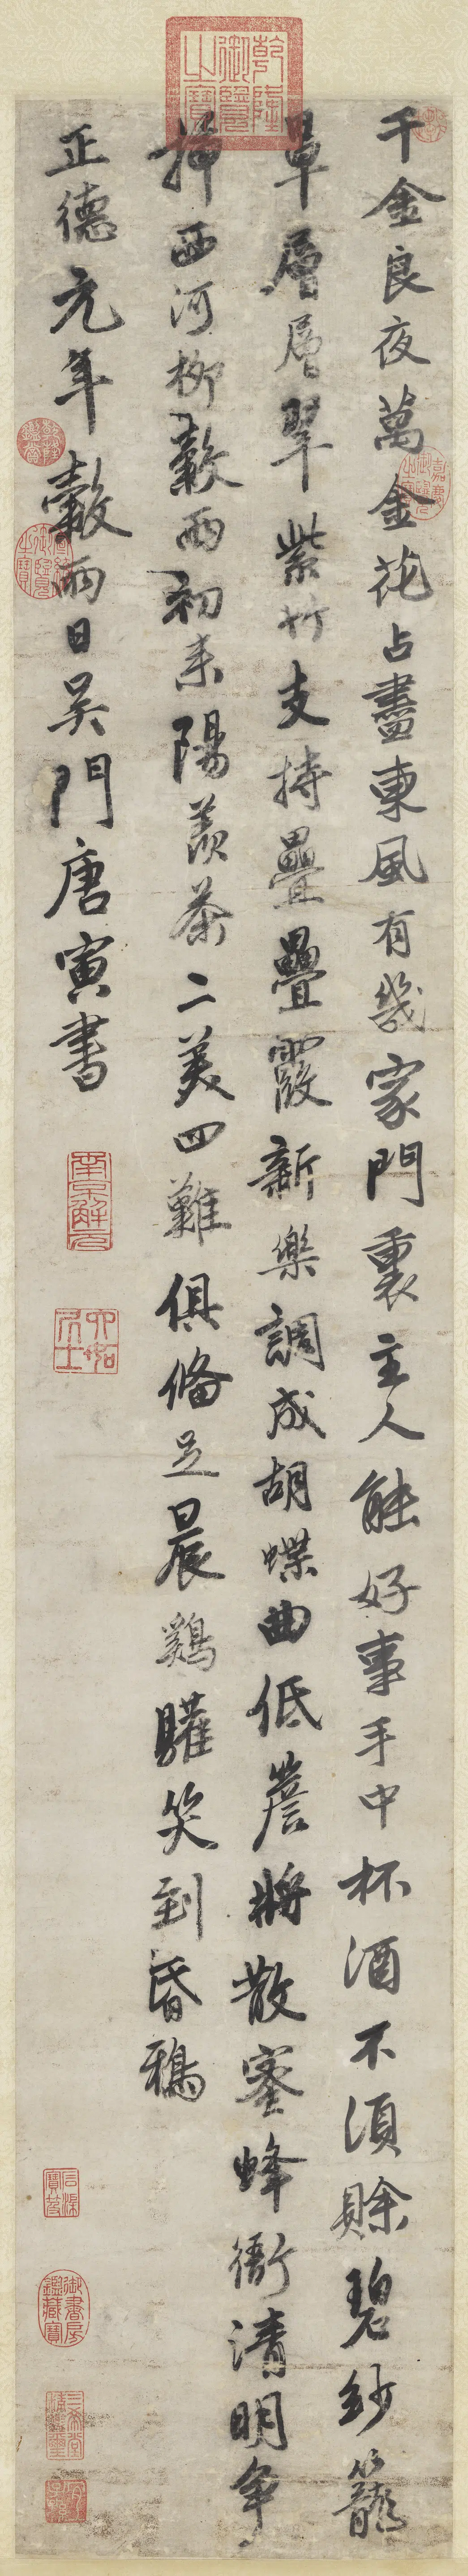 千金良夜萬金花占盡東風有幾家門裏主人能好事手中杯酒不須賒碧紗籠
罩層層翠紫竹支持疊疊霞新樂調成胡蝶曲低簷將散蜜蜂衙清明爭
插西河柳穀雨初來陽羨茶二美四難俱備足晨鷄讙笑到昏鴉
正德元年穀雨日吳門唐寅書
乾隆御覽之寶
嘉慶御覽之寶
乾隆鑑賞
宣統御覽之寶
南京解元
六如居士
石渠寶笈
御書房鑑藏寶
三希堂精鑑璽
宜子孫